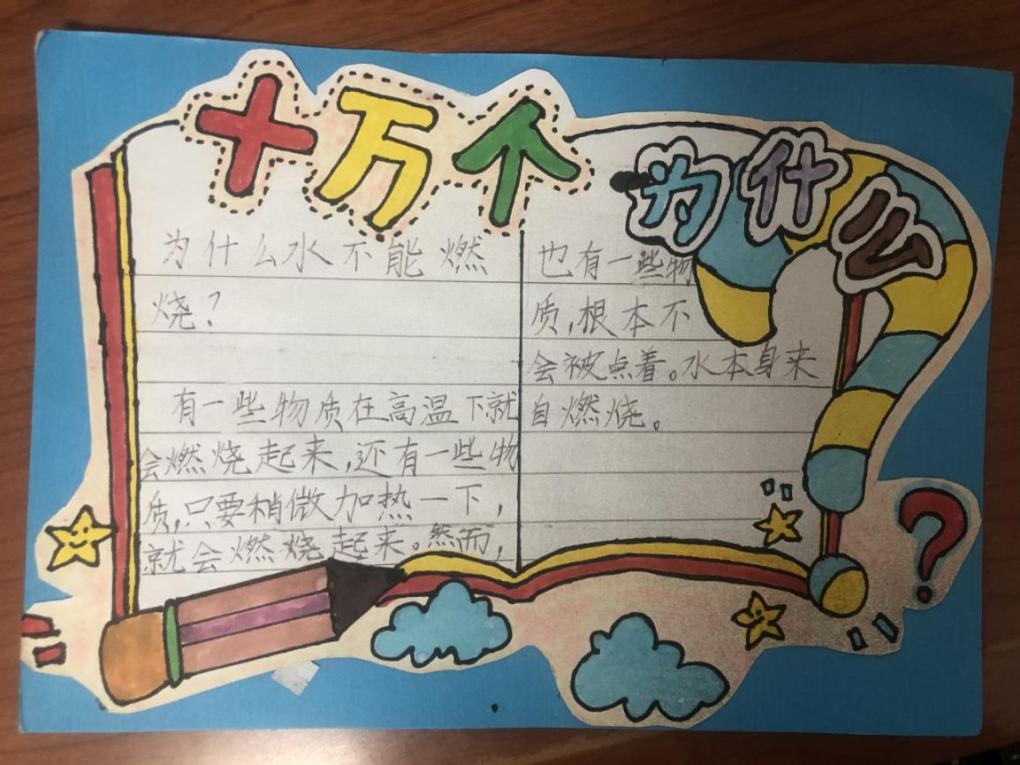 十万个
为什么
为什么水不能燃
烧?
有一些物质在高温下就
会燃烧起来,还有一些物
质,只要稍微加热一下,
就会燃烧起来。然而,
也有一些物
质,根本不
会被点着。水本身来
自燃烧。
?